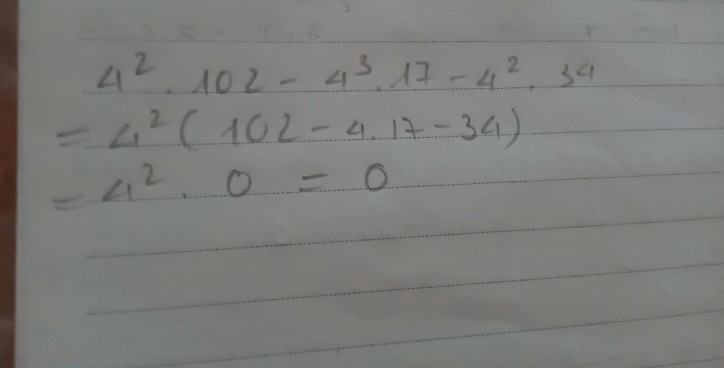 4² . 102 - 4³ . 17 - 4² . 34
= 4² ( 102 - 4 . 17 - 34 )
= 4² . 0 = 0